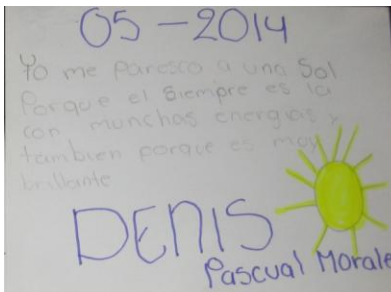 05-2014
Yo me Paresco a una Sol
Porque el Siempre es la
con munchas energias y
tambien porque es muy
brillante
DENIS
Pascual Morale